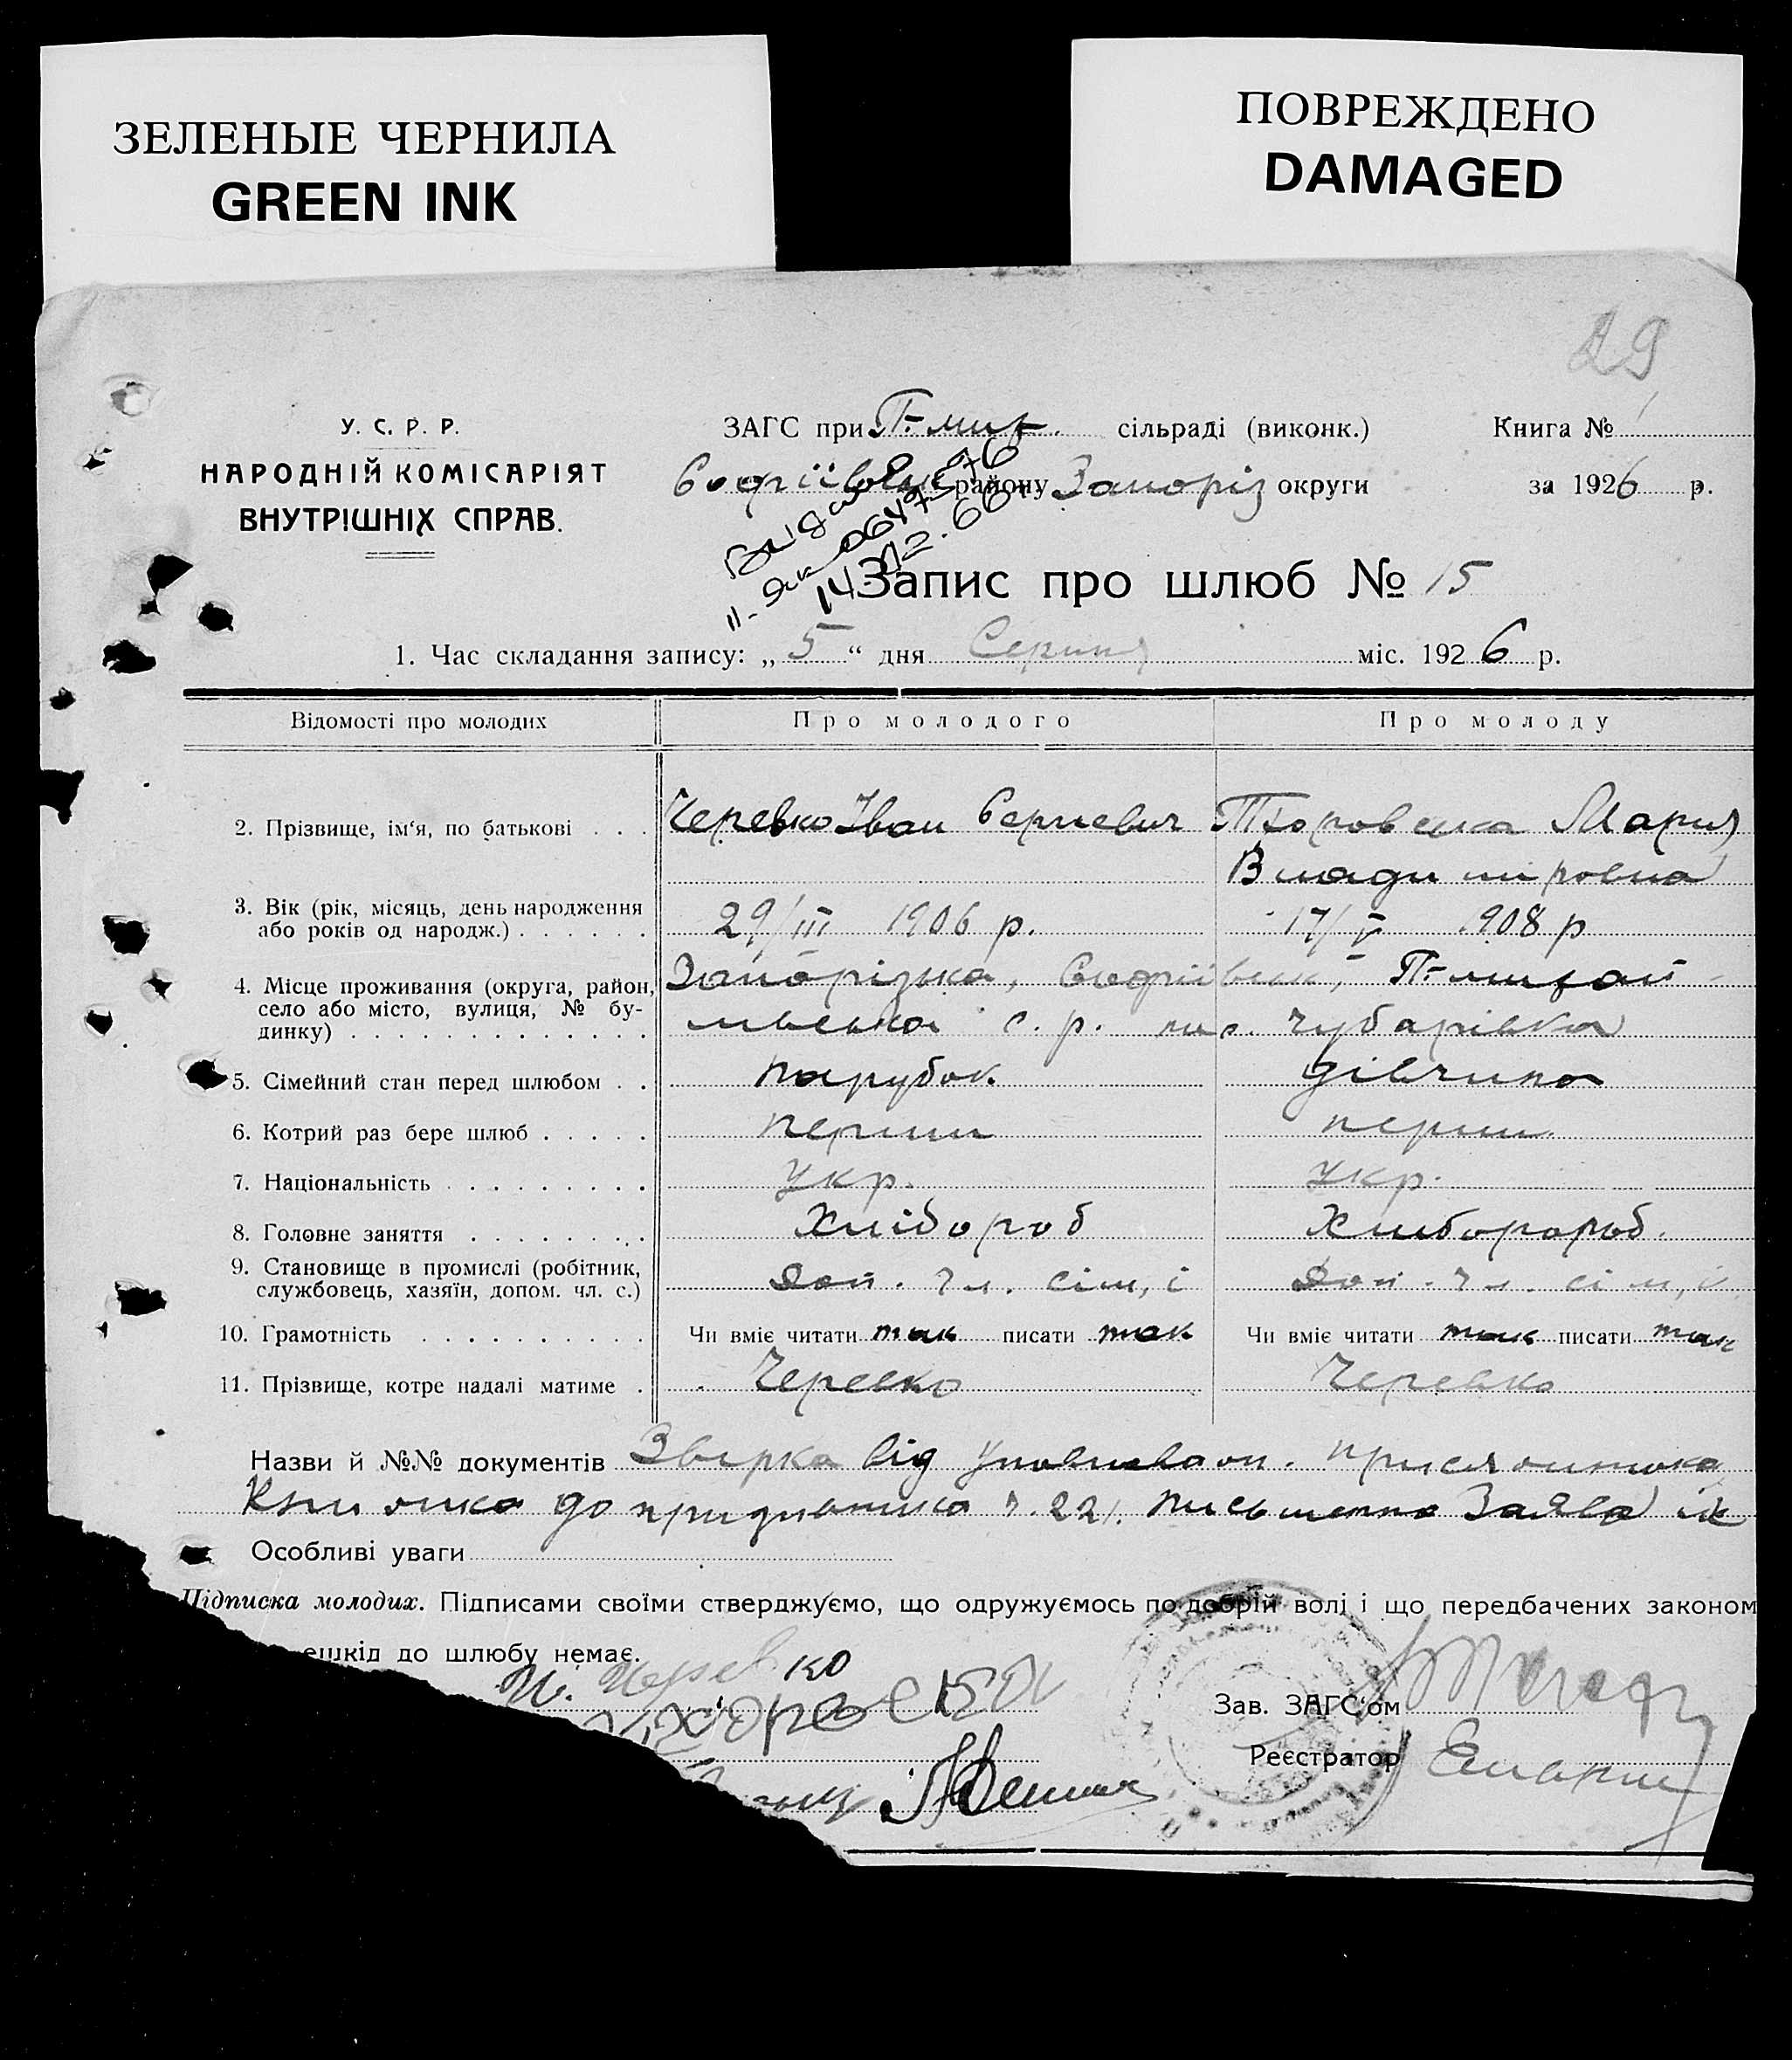 ЗЕЛЕНЫЕ ЧЕРНИЛА
GREEN INK
ПОВРЕЖДЕНО
DAMAGED
29
У. С. Р. Р.
НАРОДНІЙ КОМІСАРІЯТ
ВНУТРІШНІХ СПРАВ.
ЗАГС при П-мих. сільраді (виконк.) Книга № 1
Софіївськ району Запоріз округи за 1926 р.
14/12.66
Запис про шлюб № 15
1. Час складання запису: „ 5 “ дня Серпня міс. 1926 р.
Відомості про молодих Про молодого Про молоду
2. Прізвище, ім‘я, по батькові . . . Черевко Іван Сергиевич Мария
Владимировна
3. Вік (рік, місяць, день народження
або років од народж.) . . . . . . 29/III 1906 р. 17/V 908 р
4. Місце проживання (округа, район, Запорізька, Софіївськ, П-михай-
село або місто, вулиця, № бу- лівська с. р. пос. Чубарівка
динку) . . . . . . . . . . . . .
5. Сімейний стан перед шлюбом . . парубок дівчина
6. Котрий раз бере шлюб . . . . . перши перши
7. Національність . . . . . . . . . укр. укр.
8. Головне заняття . . . . . . . . . Хлібороб Хлибороб.
9. Становище в промислі (робітник,
службовець, хазяїн, допом. чл. с.) Доп. чл. сім,і Доп. чл. сім,ї
10. Грамотність . . . . . . . . . . Чи вміє читати так писати так Чи вміє читати так писати так
11. Прізвище, котре надалі матиме . Черевко Черевко
Назви й №№ документів від
до ч. 221. письменна Заява їх
Особливі уваги
Підписка молодих. Підписами своїми стверджуємо, що одружуємось по добрій волі і що передбачених законом
ешкід до шлюбу немає.
И. Черевко
Зав. ЗАГС‘ом
Реєстратор